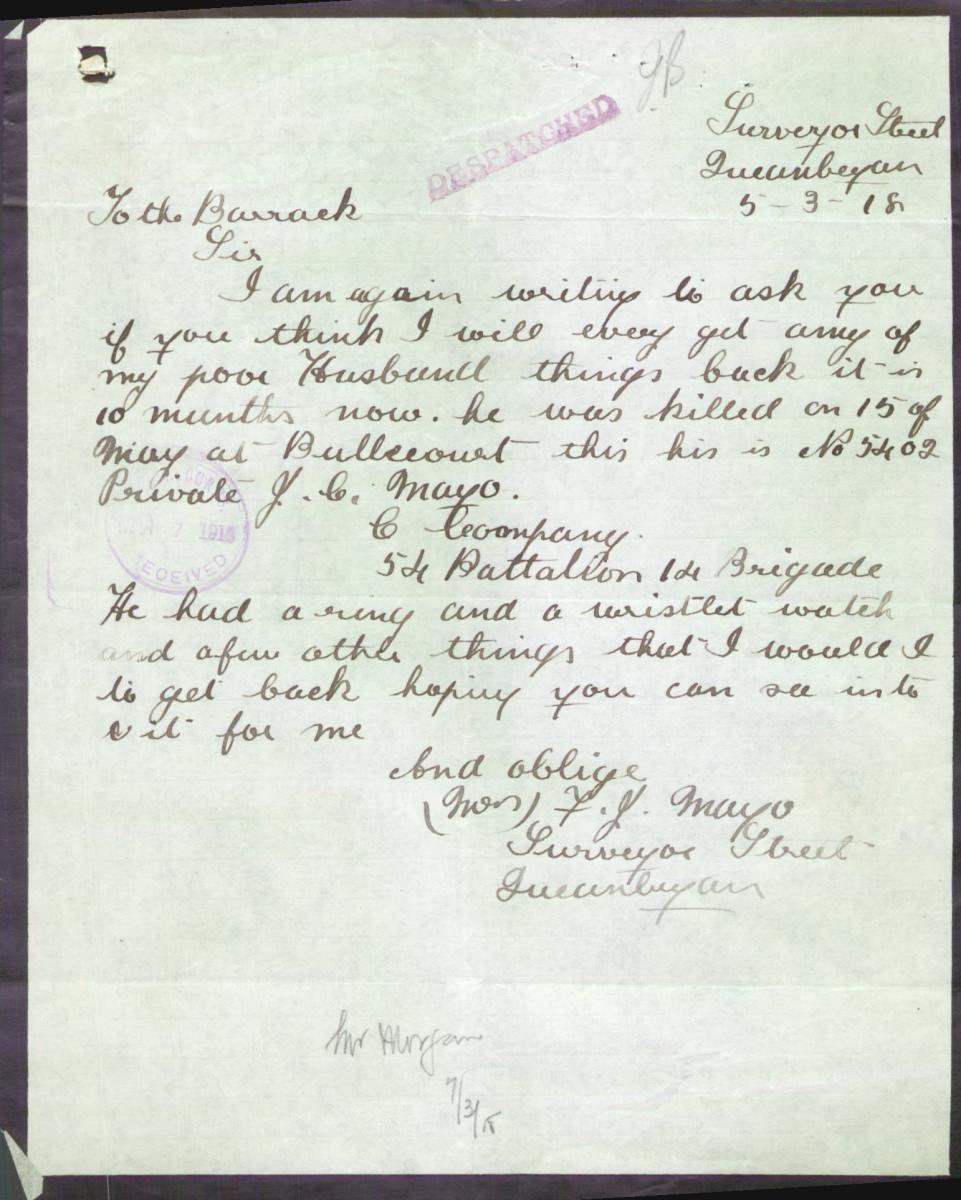 JB
DESPATCHED
Surveyor Street
Queanbeyan
5-3-18
To the Barrack
Sir
I am again writing to ask you
if you think I will every get any of
my poor Husband things back it is
10 munths now. he was killed on 15 of
May at Bullecourt this his is No 5402
Private J. C. Mayo.
RECEIVED
C Coompany.
54 Battalion 14 Brigade
He had a ring and a wristlet watch
and a few other things that I would I
to get back hoping you can see into
it for me
And oblige
(Mrs) F. J. Mayo
Surveyor Street
Queanbeyan
Mr Morgan
7/3/18